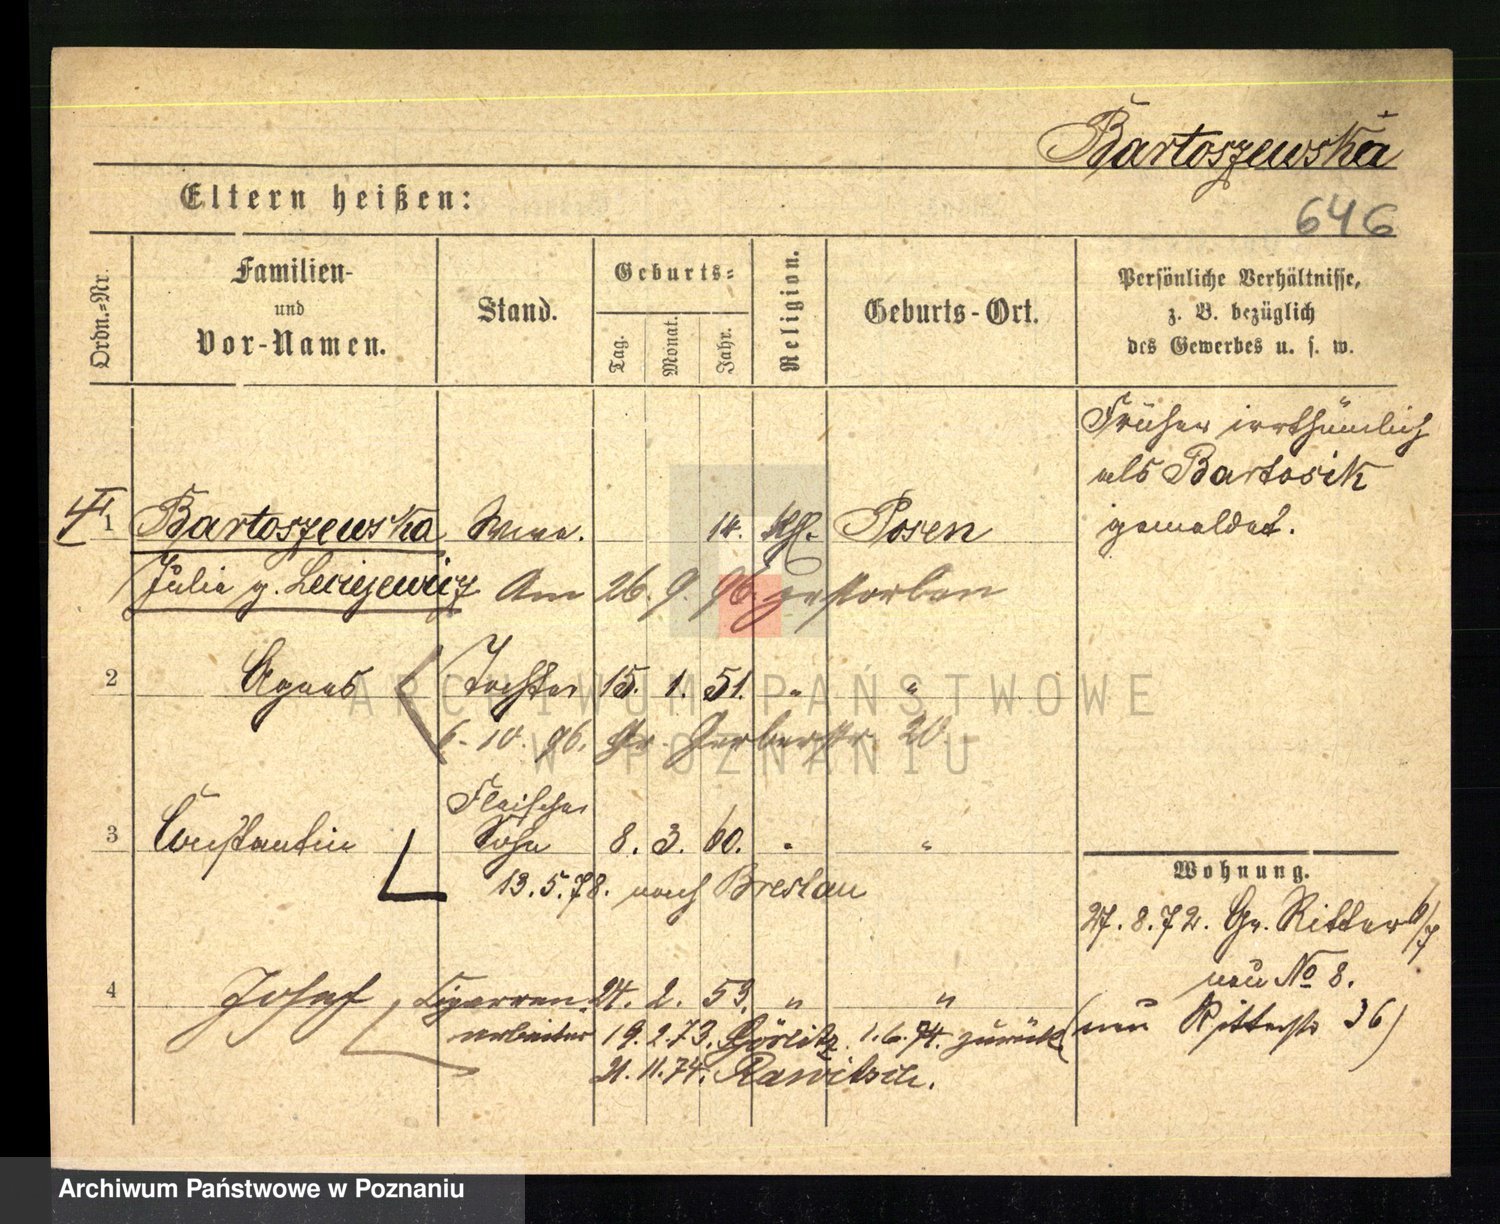 Bartoszewska
Eltern heißen:
646
Ordn.-Nr.
Familien-
und
Vor-Namen.
Stand.
Geburts-
Tag.
Monat.
Jahr.
Religion.
Geburts-Ort.
Persönliche Verhältnisse,
z. B. bezüglich
des Gewerbes u. s. w.
Früher irrthümlich
als Bartosik
gemeldet.
1 Bartoszewska Wwe. 14. kth. Posen
Julia g. Leciejewicz Am 26. 9. 96. gestorben
2 Agnes Tochter 15. 1. 51. " "
6. 10. 96. Gr. Gerberstr. 20
Fleischer
3 Constantin Sohn 8. 3. 60. " "
13. 5. 78. nach Breslau
4 Josef Cigarren- 24. 2. 53. " "
arbeiter 19. 2. 73. Görlitz. 1. 6. 74. zurück
21. 11. 74. Rawitsch.
Wohnung.
27. 8. 72. Gr. Ritter 6/7
neu No 8.
(neu Ritterstr 36)
ARCHIWUM PAŃSTWOWE
W POZNANIU
Archiwum Państwowe w Poznaniu